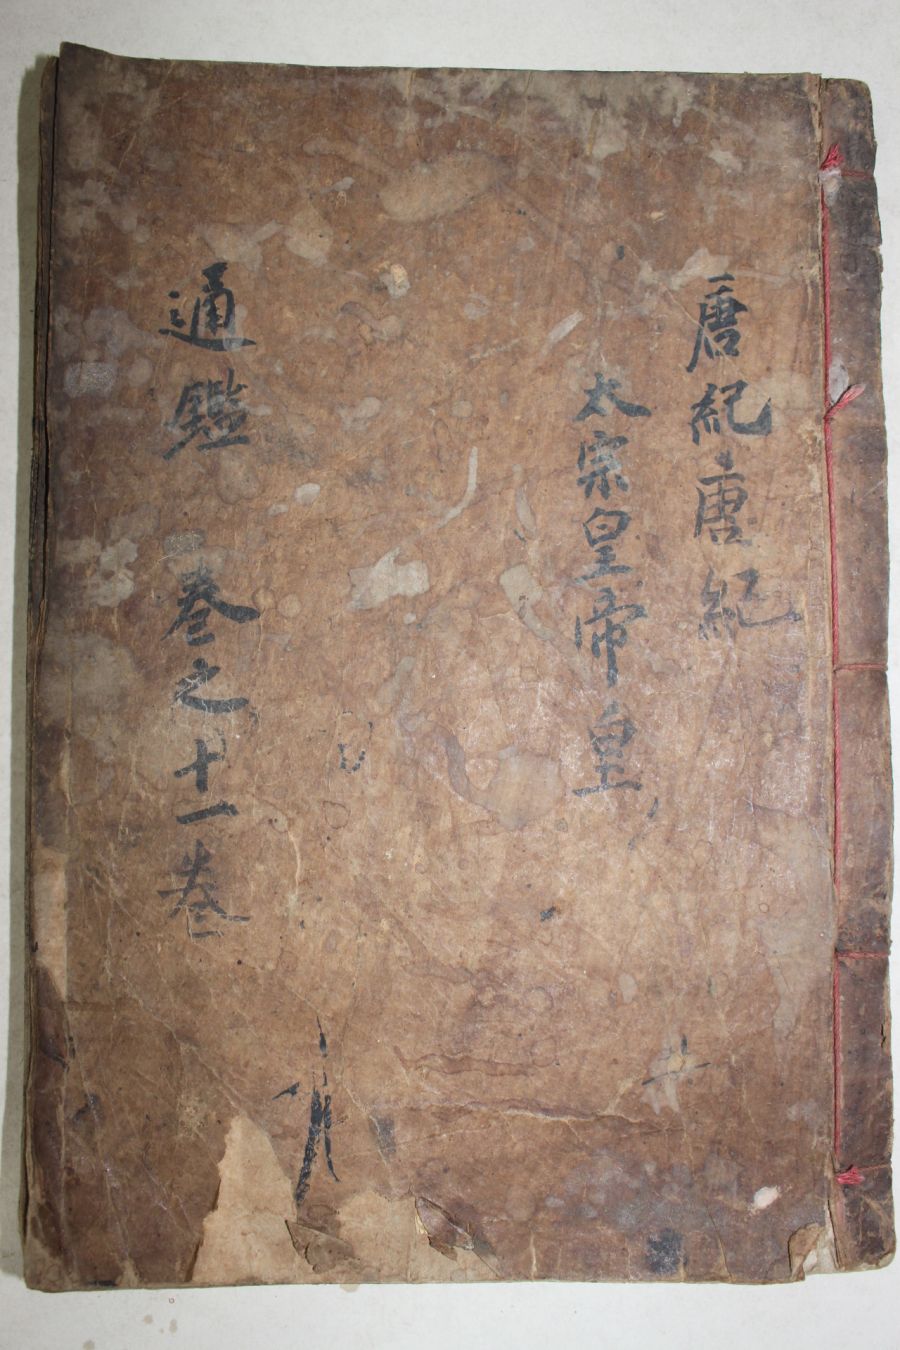 唐紀唐紀
太宗皇帝皇
通鑑 巻之十一巻